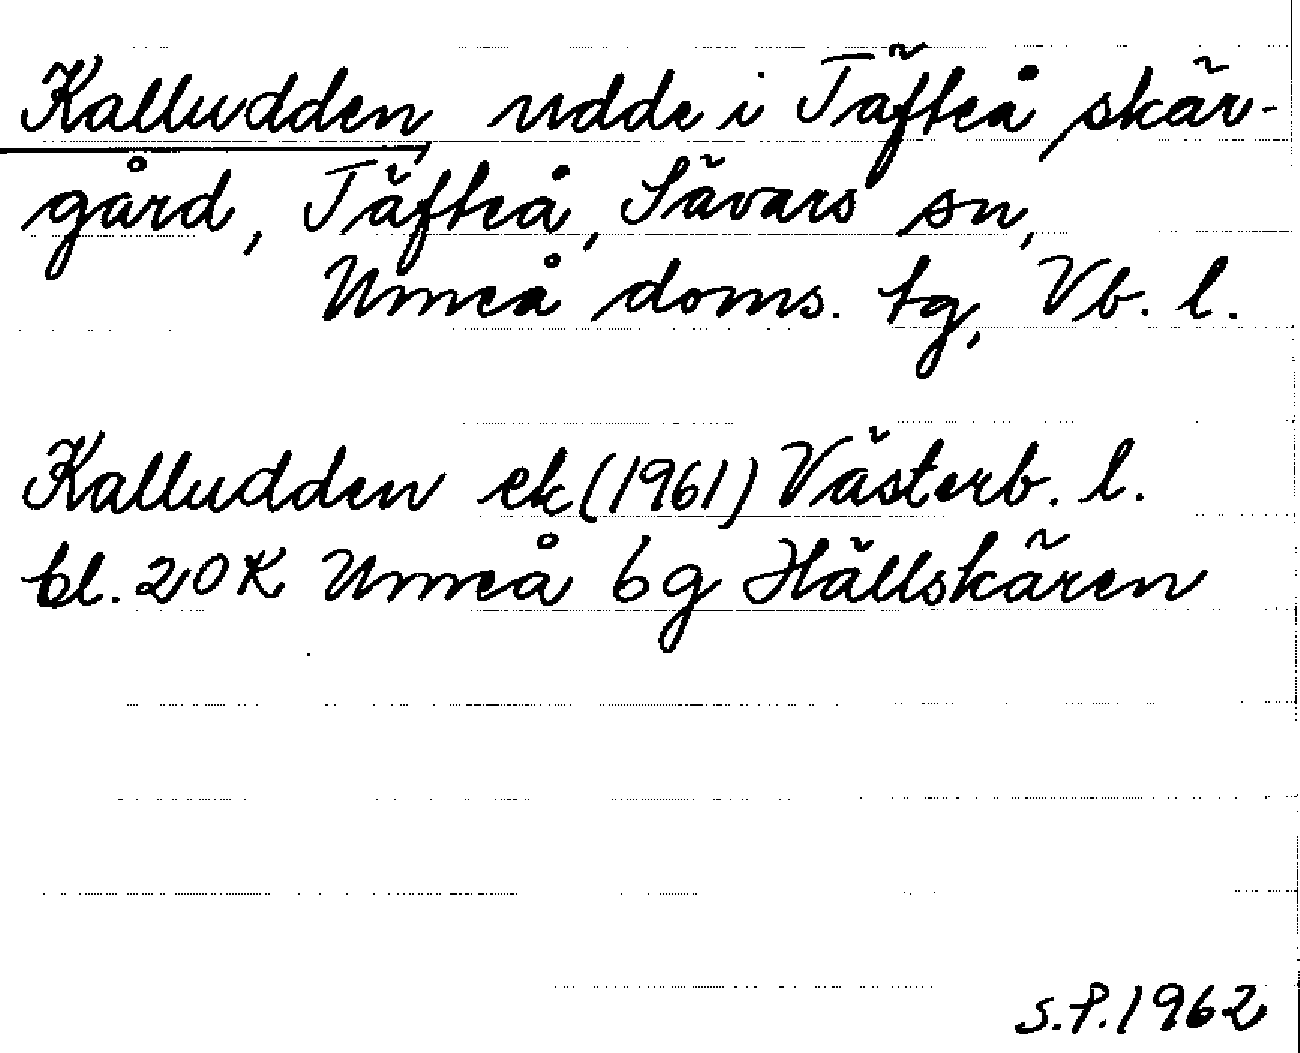 Kalludden, udde i Täfteå skär-
gård, Täfteå, Sävars sn,
Umeå doms. tg, Vb. l.
Kalludden ek (1961) Västerb. l.
bl. 20K Umeå 6g Hällskären
S.P. 1962